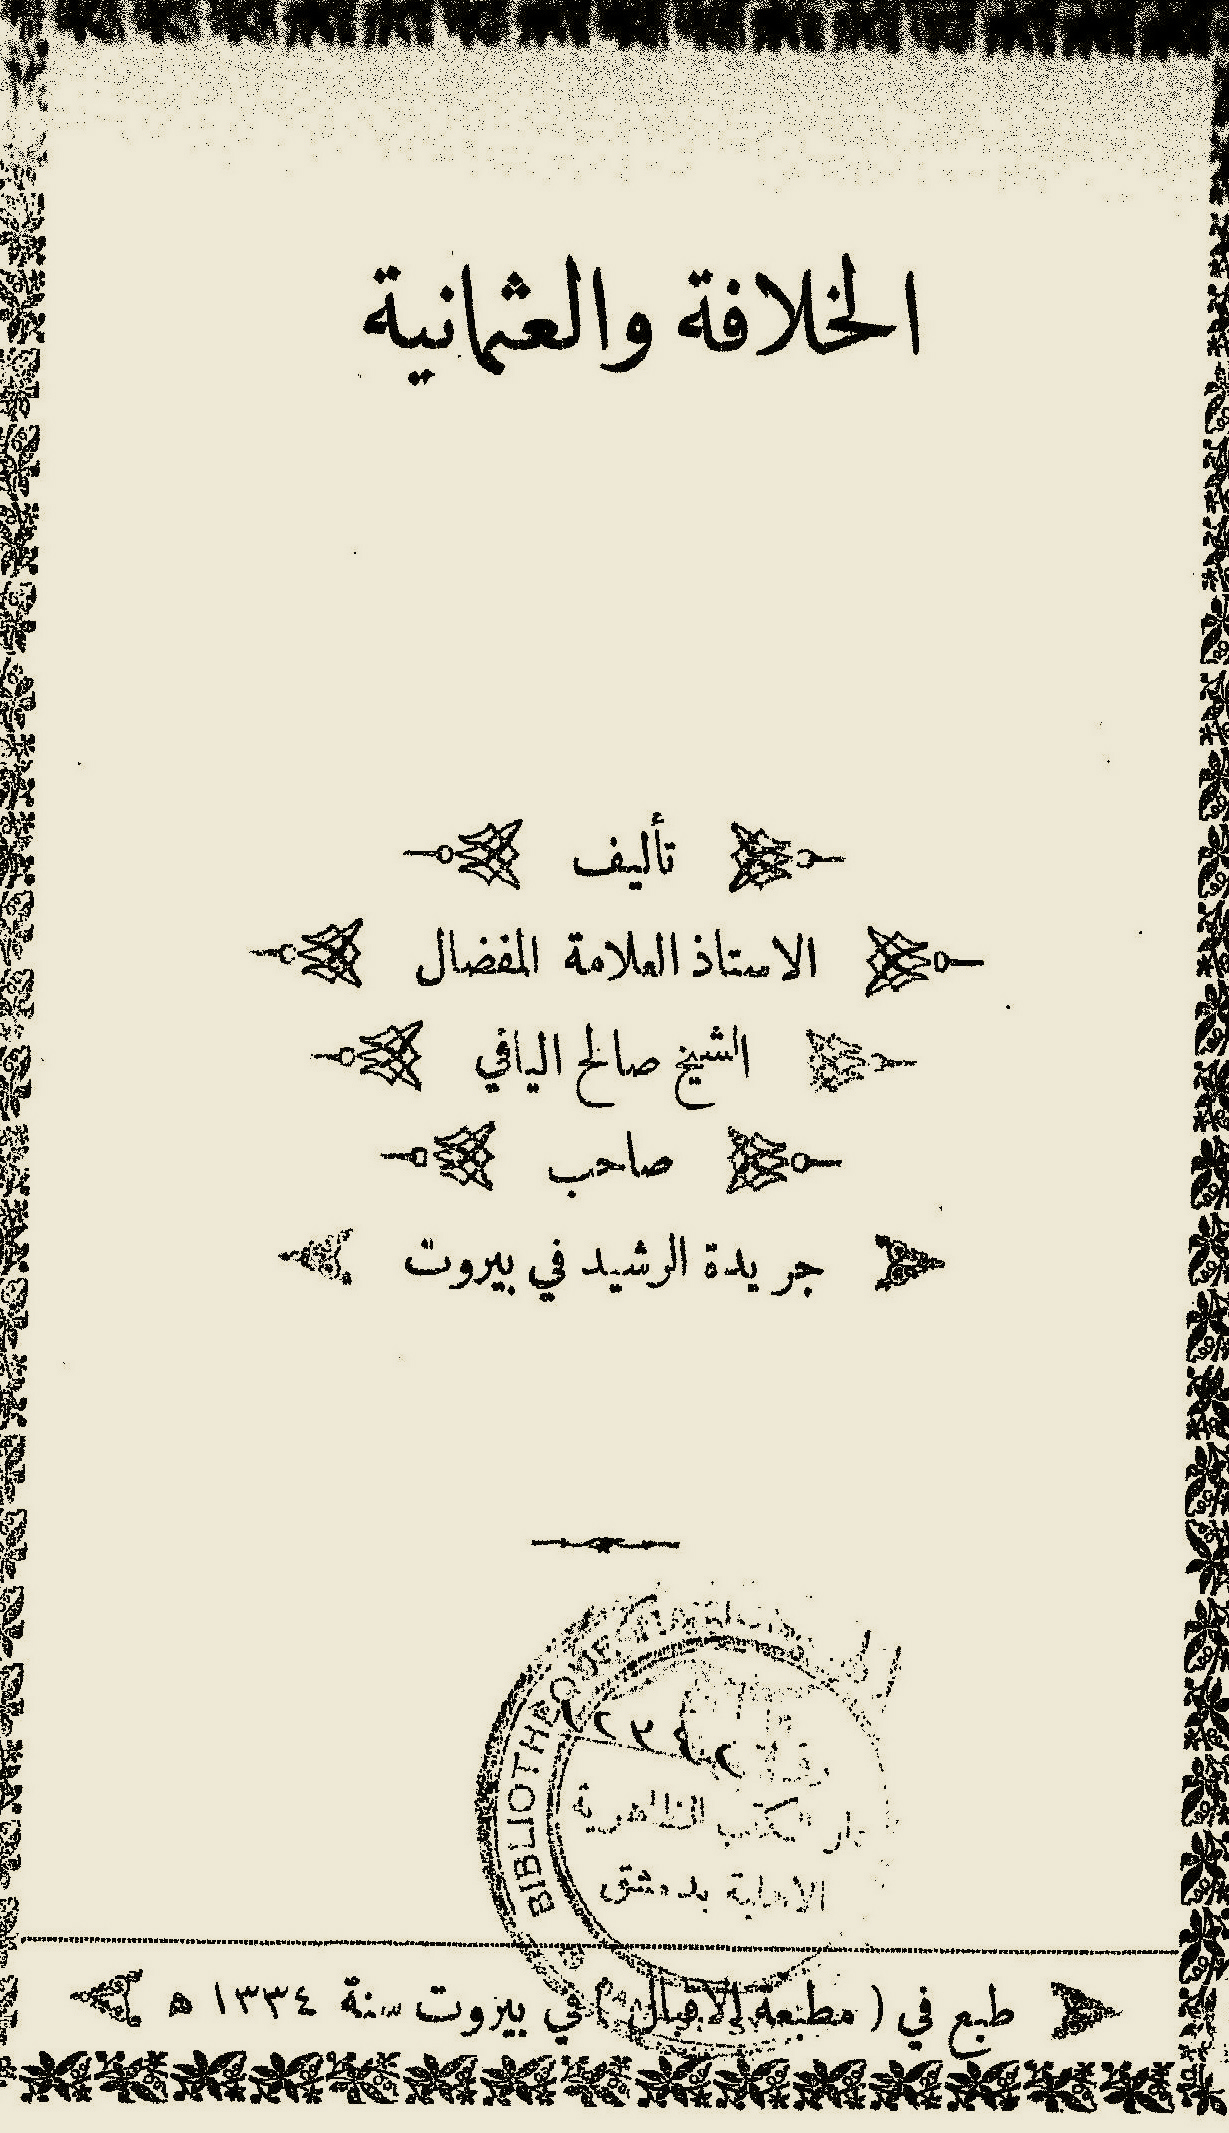 الخلافة والعثمانية
تأليف
الاستاذ العلامة المفضال
الشيخ صالح اليافي
صاحب
جريدة الرشيد في بيروت
BIBLIOTHEQUE
دار الكتب الظاهرية
الاهلية بدمشق
طبع في ( مطبعة الاقبال ) في بيروت سنة ١٣٣٤ ھ